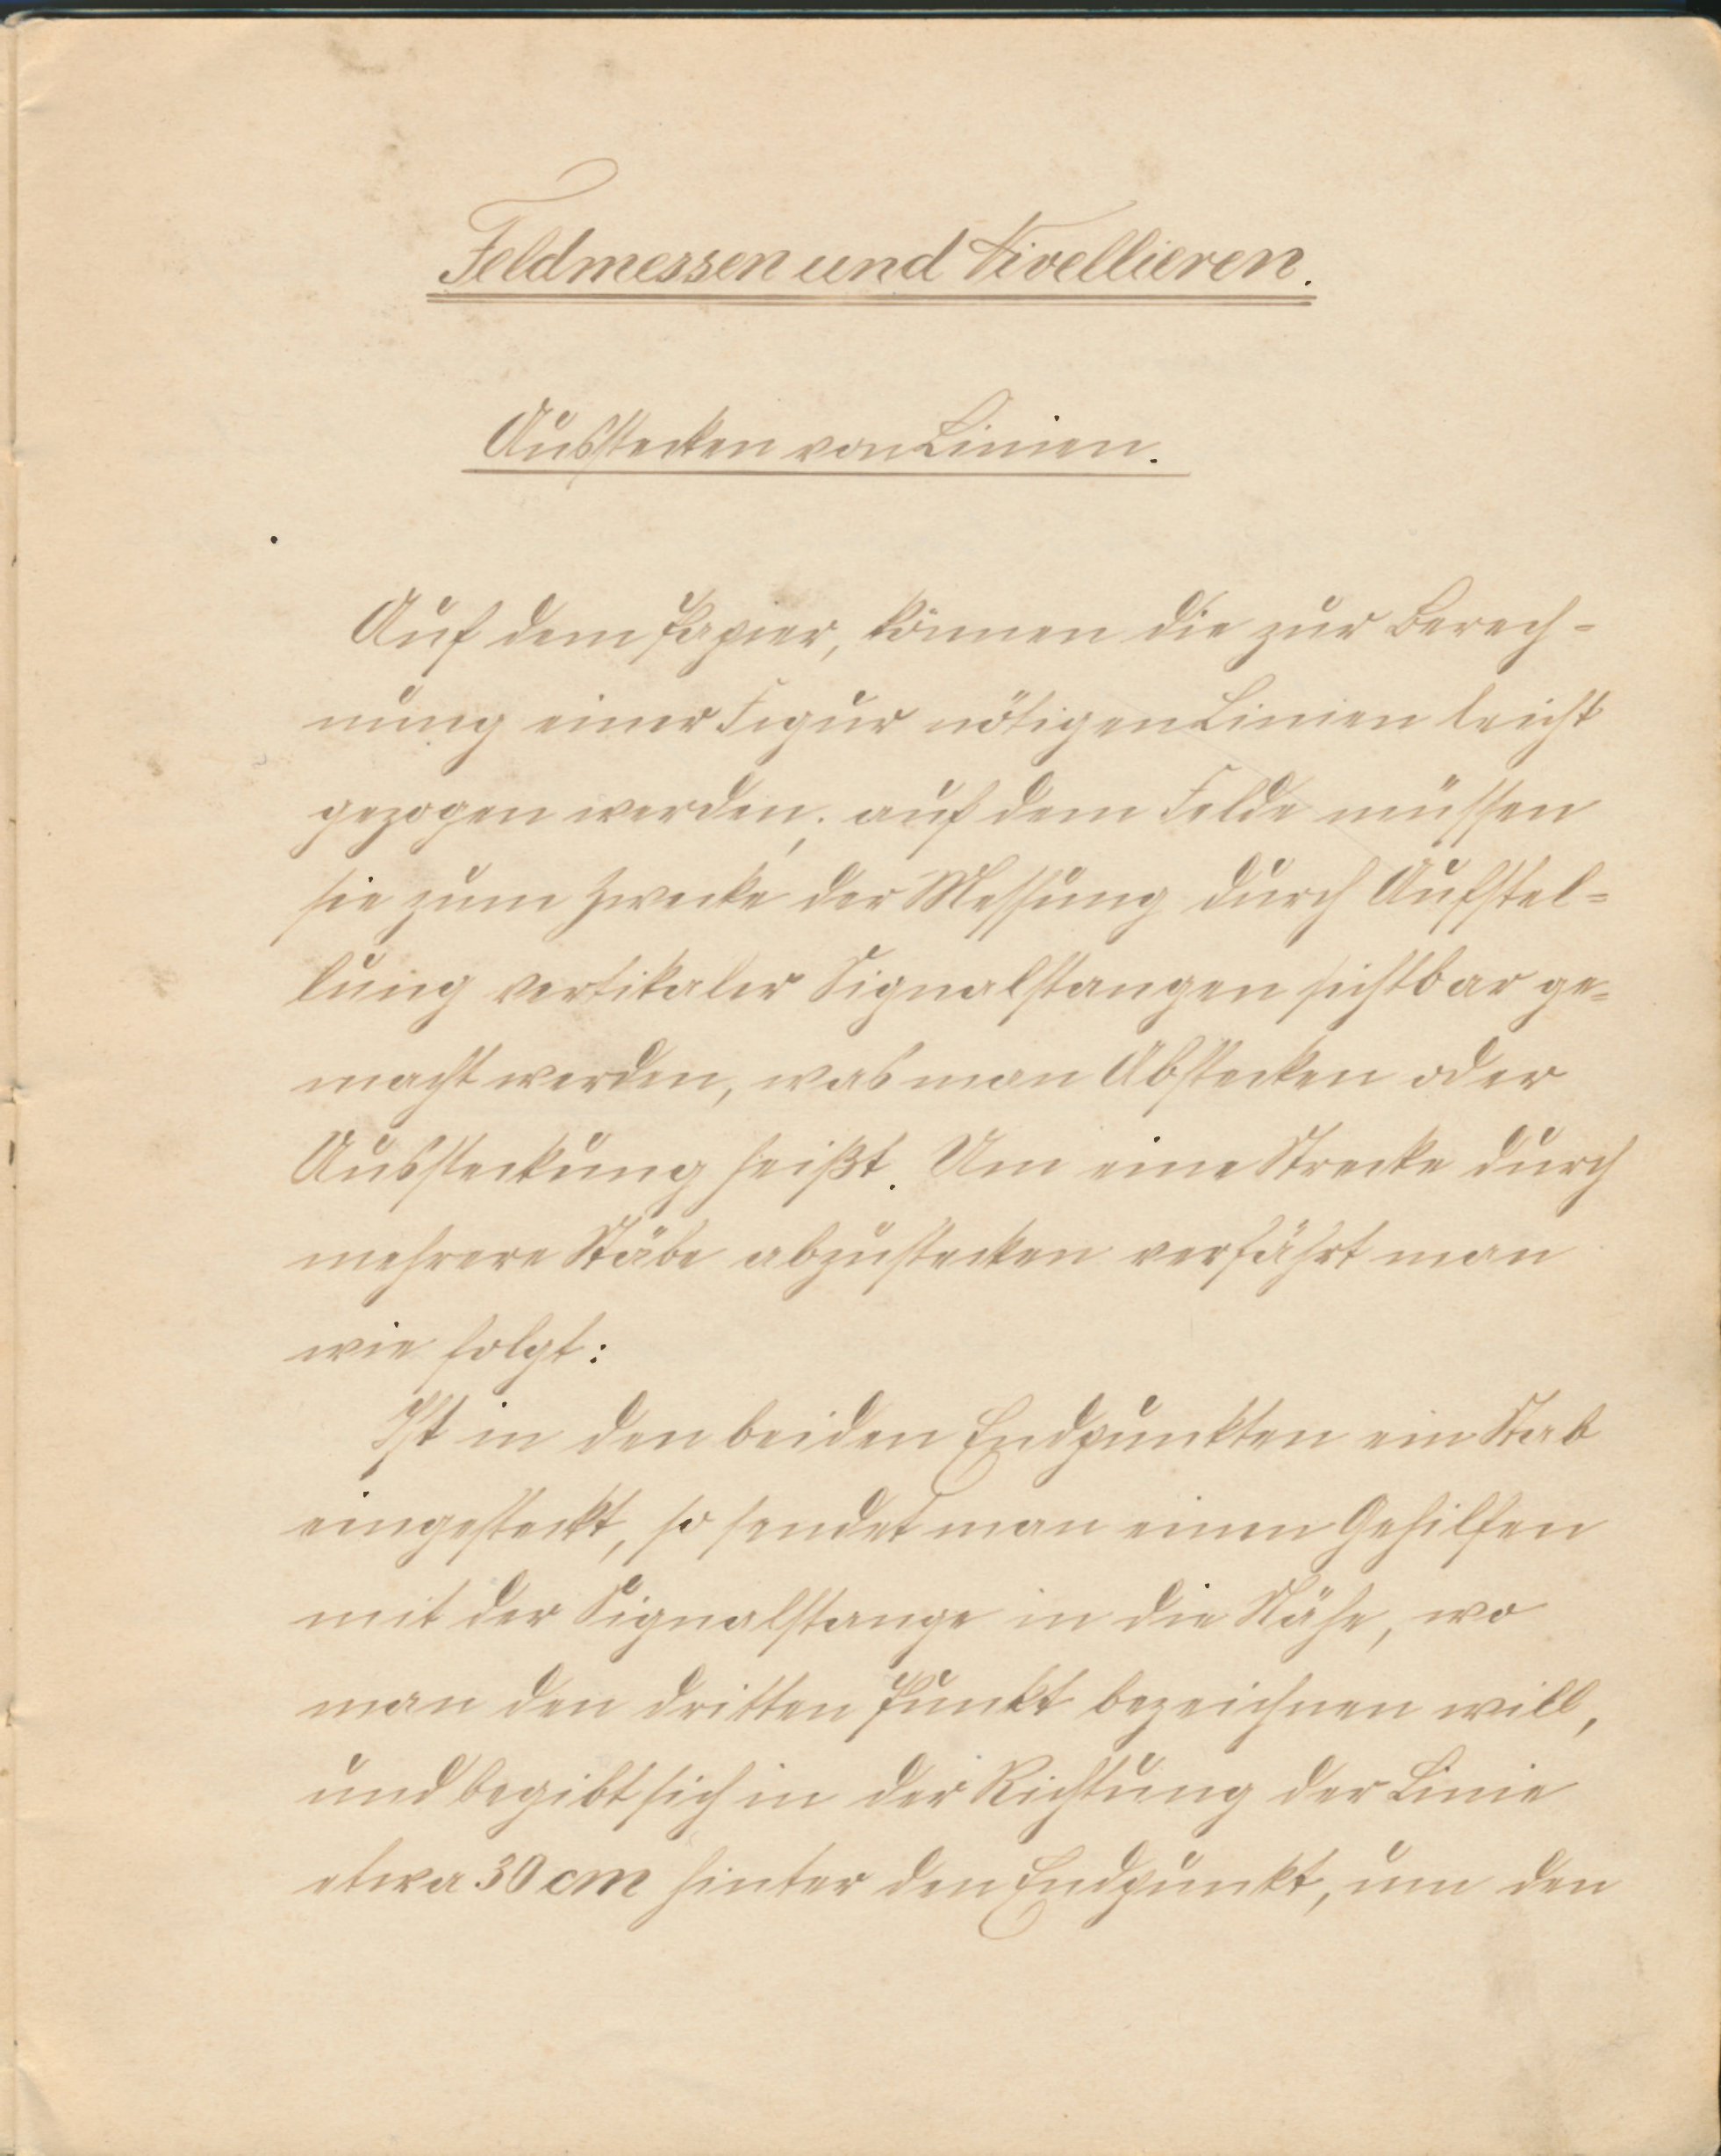 Feldmessen und Nivellieren.
Ausstecken von Linien.
Auf dem Papier, können die zur Berech-
nung einer Figur nötigen Linien leicht
gezogen werden; auf dem Felde müssen
sie zum Zwecke der Messung durch Aufstel-
lung vertikaler Signalstangen sichtbar ge-
macht werden, was man Abstecken oder
Aussteckung heißt. Um eine Strecke durch
mehrere Stäbe abzustecken verfährt man
wie folgt:
Ist in den beiden Endpunkten ein Stab
eingesteckt, so sendet man einen Gehilfen
mit der Signalstange in die Nähe, wo
man den dritten Punkt bezeichnen will,
und begibt sich in der Richtung der Linie
etwa 30 cm hinter den Endpunkt, um den